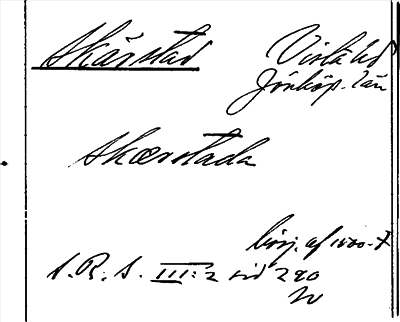 Skärstad
Vista hd
Jönköp. län
Skærstada
börj. af 1500-t
S.R.S. III:2 sid 290